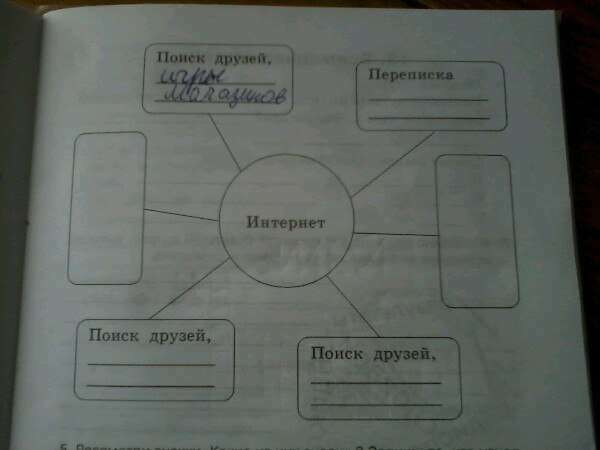 Поиск друзей,
игры
магазинов
Переписка
Интернет
Поиск друзей,
Поиск друзей,